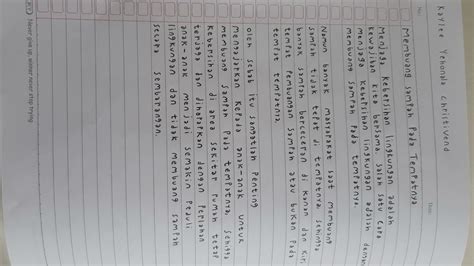 Kaylee Yehonda Christivend
No: Date:
Membuang Sampah Pada Tempatnya
Menjaga Kebersihan lingkungan adalah
Kewajiban kita bersama. salah satu cara
menjaga kebersihan lingkungan adalah
membuang sampah pada tempatnya.
Namun banyak masyarakat saat membuang
sampah tidak tepat di tempatnya, sehingga
banyak sampah berceceran di kanan dan kiri
tempat Pembuangan sampah atau bukan Pada
tempat tempatnya.
oleh sebab itu sangatlah Penting
mengajarkan kepada anak-anak untuk
membuang sampah Pada tempatnya, sehigga
Kebersihan di area sekitar rumah tetap
terjaga dan diharapkan dengan Perlahan
anak-anak menjadi semakin Peduli
lingkungan dan tidak membuang sampah
secara sembarangan.
Never give up, winner never stop trying